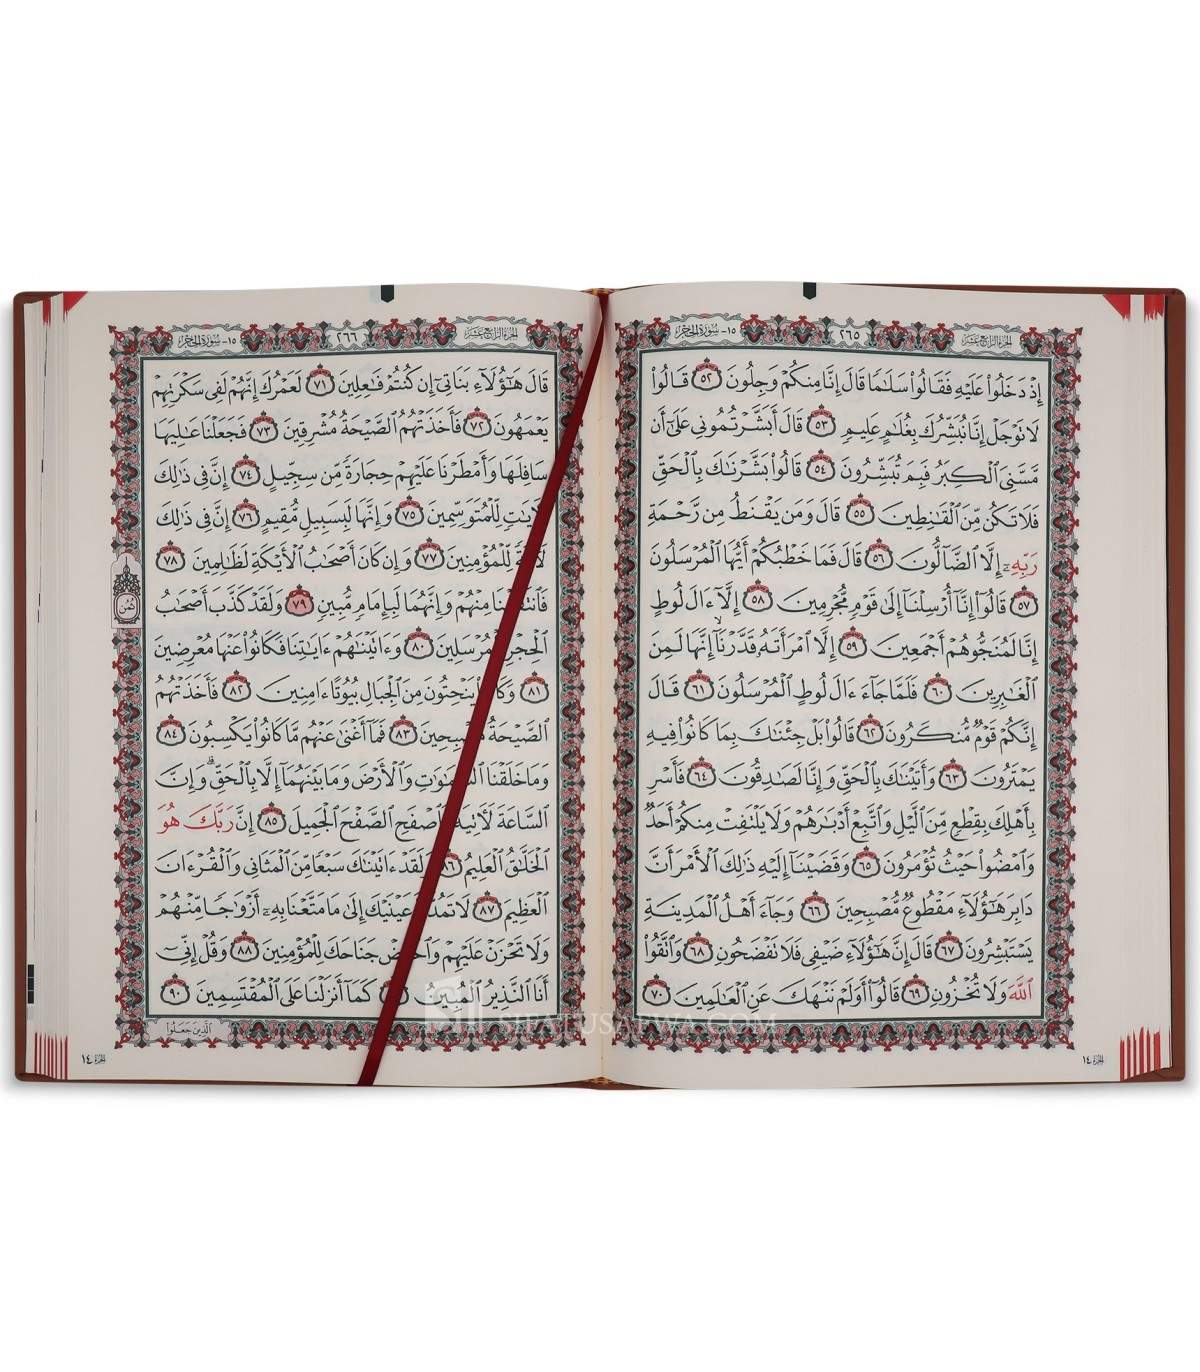 الجزء الرابع عشر ٢٦٥ ١٥- سورة الحجر
إِذْ دَخَلُوا۟ عَلَيْهِ فَقَالُوا۟ سَلَٰمًا قَالَ إِنَّا مِنكُمْ وَجِلُونَ ٥٢ قَالُوا۟
لَا تَوْجَلْ إِنَّا نُبَشِّرُكَ بِغُلَٰمٍ عَلِيمٍ ٥٣ قَالَ أَبَشَّرْتُمُونِى عَلَىٰٓ أَن
مَّسَّنِىَ ٱلْكِبَرُ فَبِمَ تُبَشِّرُونَ ٥٤ قَالُوا۟ بَشَّرْنَٰكَ بِٱلْحَقِّ
فَلَا تَكُن مِّنَ ٱلْقَٰنِطِينَ ٥٥ قَالَ وَمَن يَقْنَطُ مِن رَّحْمَةِ
رَبِّهِۦٓ إِلَّا ٱلضَّآلُّونَ ٥٦ قَالَ فَمَا خَطْبُكُمْ أَيُّهَا ٱلْمُرْسَلُونَ
٥٧ قَالُوٓا۟ إِنَّآ أُرْسِلْنَآ إِلَىٰ قَوْمٍ مُّجْرِمِينَ ٥٨ إِلَّآ ءَالَ لُوطٍ
إِنَّا لَمُنَجُّوهُمْ أَجْمَعِينَ ٥٩ إِلَّا ٱمْرَأَتَهُۥ قَدَّرْنَآ ۙ إِنَّهَا لَمِنَ
ٱلْغَٰبِرِينَ ٦٠ فَلَمَّا جَآءَ ءَالَ لُوطٍ ٱلْمُرْسَلُونَ ٦١ قَالَ
إِنَّكُمْ قَوْمٌ مُّنكَرُونَ ٦٢ قَالُوا۟ بَلْ جِئْنَٰكَ بِمَا كَانُوا۟ فِيهِ
يَمْتَرُونَ ٦٣ وَأَتَيْنَٰكَ بِٱلْحَقِّ وَإِنَّا لَصَٰدِقُونَ ٦٤ فَأَسْرِ
بِأَهْلِكَ بِقِطْعٍ مِّنَ ٱلَّيْلِ وَٱتَّبِعْ أَدْبَٰرَهُمْ وَلَا يَلْتَفِتْ مِنكُمْ أَحَدٌ
وَٱمْضُوا۟ حَيْثُ تُؤْمَرُونَ ٦٥ وَقَضَيْنَآ إِلَيْهِ ذَٰلِكَ ٱلْأَمْرَ أَنَّ
دَابِرَ هَٰٓؤُلَآءِ مَقْطُوعٌ مُّصْبِحِينَ ٦٦ وَجَآءَ أَهْلُ ٱلْمَدِينَةِ
يَسْتَبْشِرُونَ ٦٧ قَالَ إِنَّ هَٰٓؤُلَآءِ ضَيْفِى فَلَا تَفْضَحُونِ ٦٨ وَٱتَّقُوا۟
ٱللَّهَ وَلَا تُخْزُونِ ٦٩ قَالُوٓا۟ أَوَلَمْ نَنْهَكَ عَنِ ٱلْعَٰلَمِينَ ٧٠
الجزء ١٤
الجزء الرابع عشر ٢٦٦ ١٥- سورة الحجر
قَالَ هَٰٓؤُلَآءِ بَنَاتِىٓ إِن كُنتُمْ فَٰعِلِينَ ٧١ لَعَمْرُكَ إِنَّهُمْ لَفِى سَكْرَتِهِمْ
يَعْمَهُونَ ٧٢ فَأَخَذَتْهُمُ ٱلصَّيْحَةُ مُشْرِقِينَ ٧٣ فَجَعَلْنَا عَٰلِيَهَا
سَافِلَهَا وَأَمْطَرْنَا عَلَيْهِمْ حِجَارَةً مِّن سِجِّيلٍ ٧٤ إِنَّ فِى ذَٰلِكَ
لِّلْمُتَوَسِّمِينَ ٧٥ وَإِنَّهَا لَبِسَبِيلٍ مُّقِيمٍ ٧٦ إِنَّ فِى ذَٰلِكَ
لِّلْمُؤْمِنِينَ ٧٧ وَإِن كَانَ أَصْحَٰبُ ٱلْأَيْكَةِ لَظَٰلِمِينَ ٧٨
مِنْهُمْ وَإِنَّهُمَا لَبِإِمَامٍ مُّبِينٍ ٧٩ وَلَقَدْ كَذَّبَ أَصْحَٰبُ
ٱلْحِجْرِ ٨٠ وَءَاتَيْنَٰهُمْ ءَايَٰتِنَا فَكَانُوا۟ عَنْهَا مُعْرِضِينَ
٨١ يَنْحِتُونَ مِنَ ٱلْجِبَالِ بُيُوتًا ءَامِنِينَ ٨٢ فَأَخَذَتْهُمُ
ٱلصَّيْحَةُ ٨٣ فَمَآ أَغْنَىٰ عَنْهُم مَّا كَانُوا۟ يَكْسِبُونَ ٨٤
وَمَا خَلَقْنَا وَٱلْأَرْضَ وَمَا بَيْنَهُمَآ إِلَّا بِٱلْحَقِّ ۗ وَإِنَّ
ٱلسَّاعَةَ ٱلصَّفْحَ ٱلْجَمِيلَ ٨٥ إِنَّ رَبَّكَ هُوَ
ٱلْخَلَّٰقُ ٱلْعَلِيمُ ءَاتَيْنَٰكَ سَبْعًا مِّنَ ٱلْمَثَانِى وَٱلْقُرْءَانَ
ٱلْعَظِيمَ ٨٧ لَا عَيْنَيْكَ إِلَىٰ مَا مَتَّعْنَا بِهِۦٓ أَزْوَٰجًا مِّنْهُمْ
وَلَا تَحْزَنْ عَلَيْهِمْ جَنَاحَكَ لِلْمُؤْمِنِينَ ٨٨ وَقُلْ إِنِّىٓ
أَنَا ٱلنَّذِيرُ ٱلْمُبِينُ كَمَآ أَنزَلْنَا عَلَى ٱلْمُقْتَسِمِينَ ٩٠
ٱلَّذِينَ جَعَلُوا۟
الجزء ١٤
SIFATUSAFWA.COM